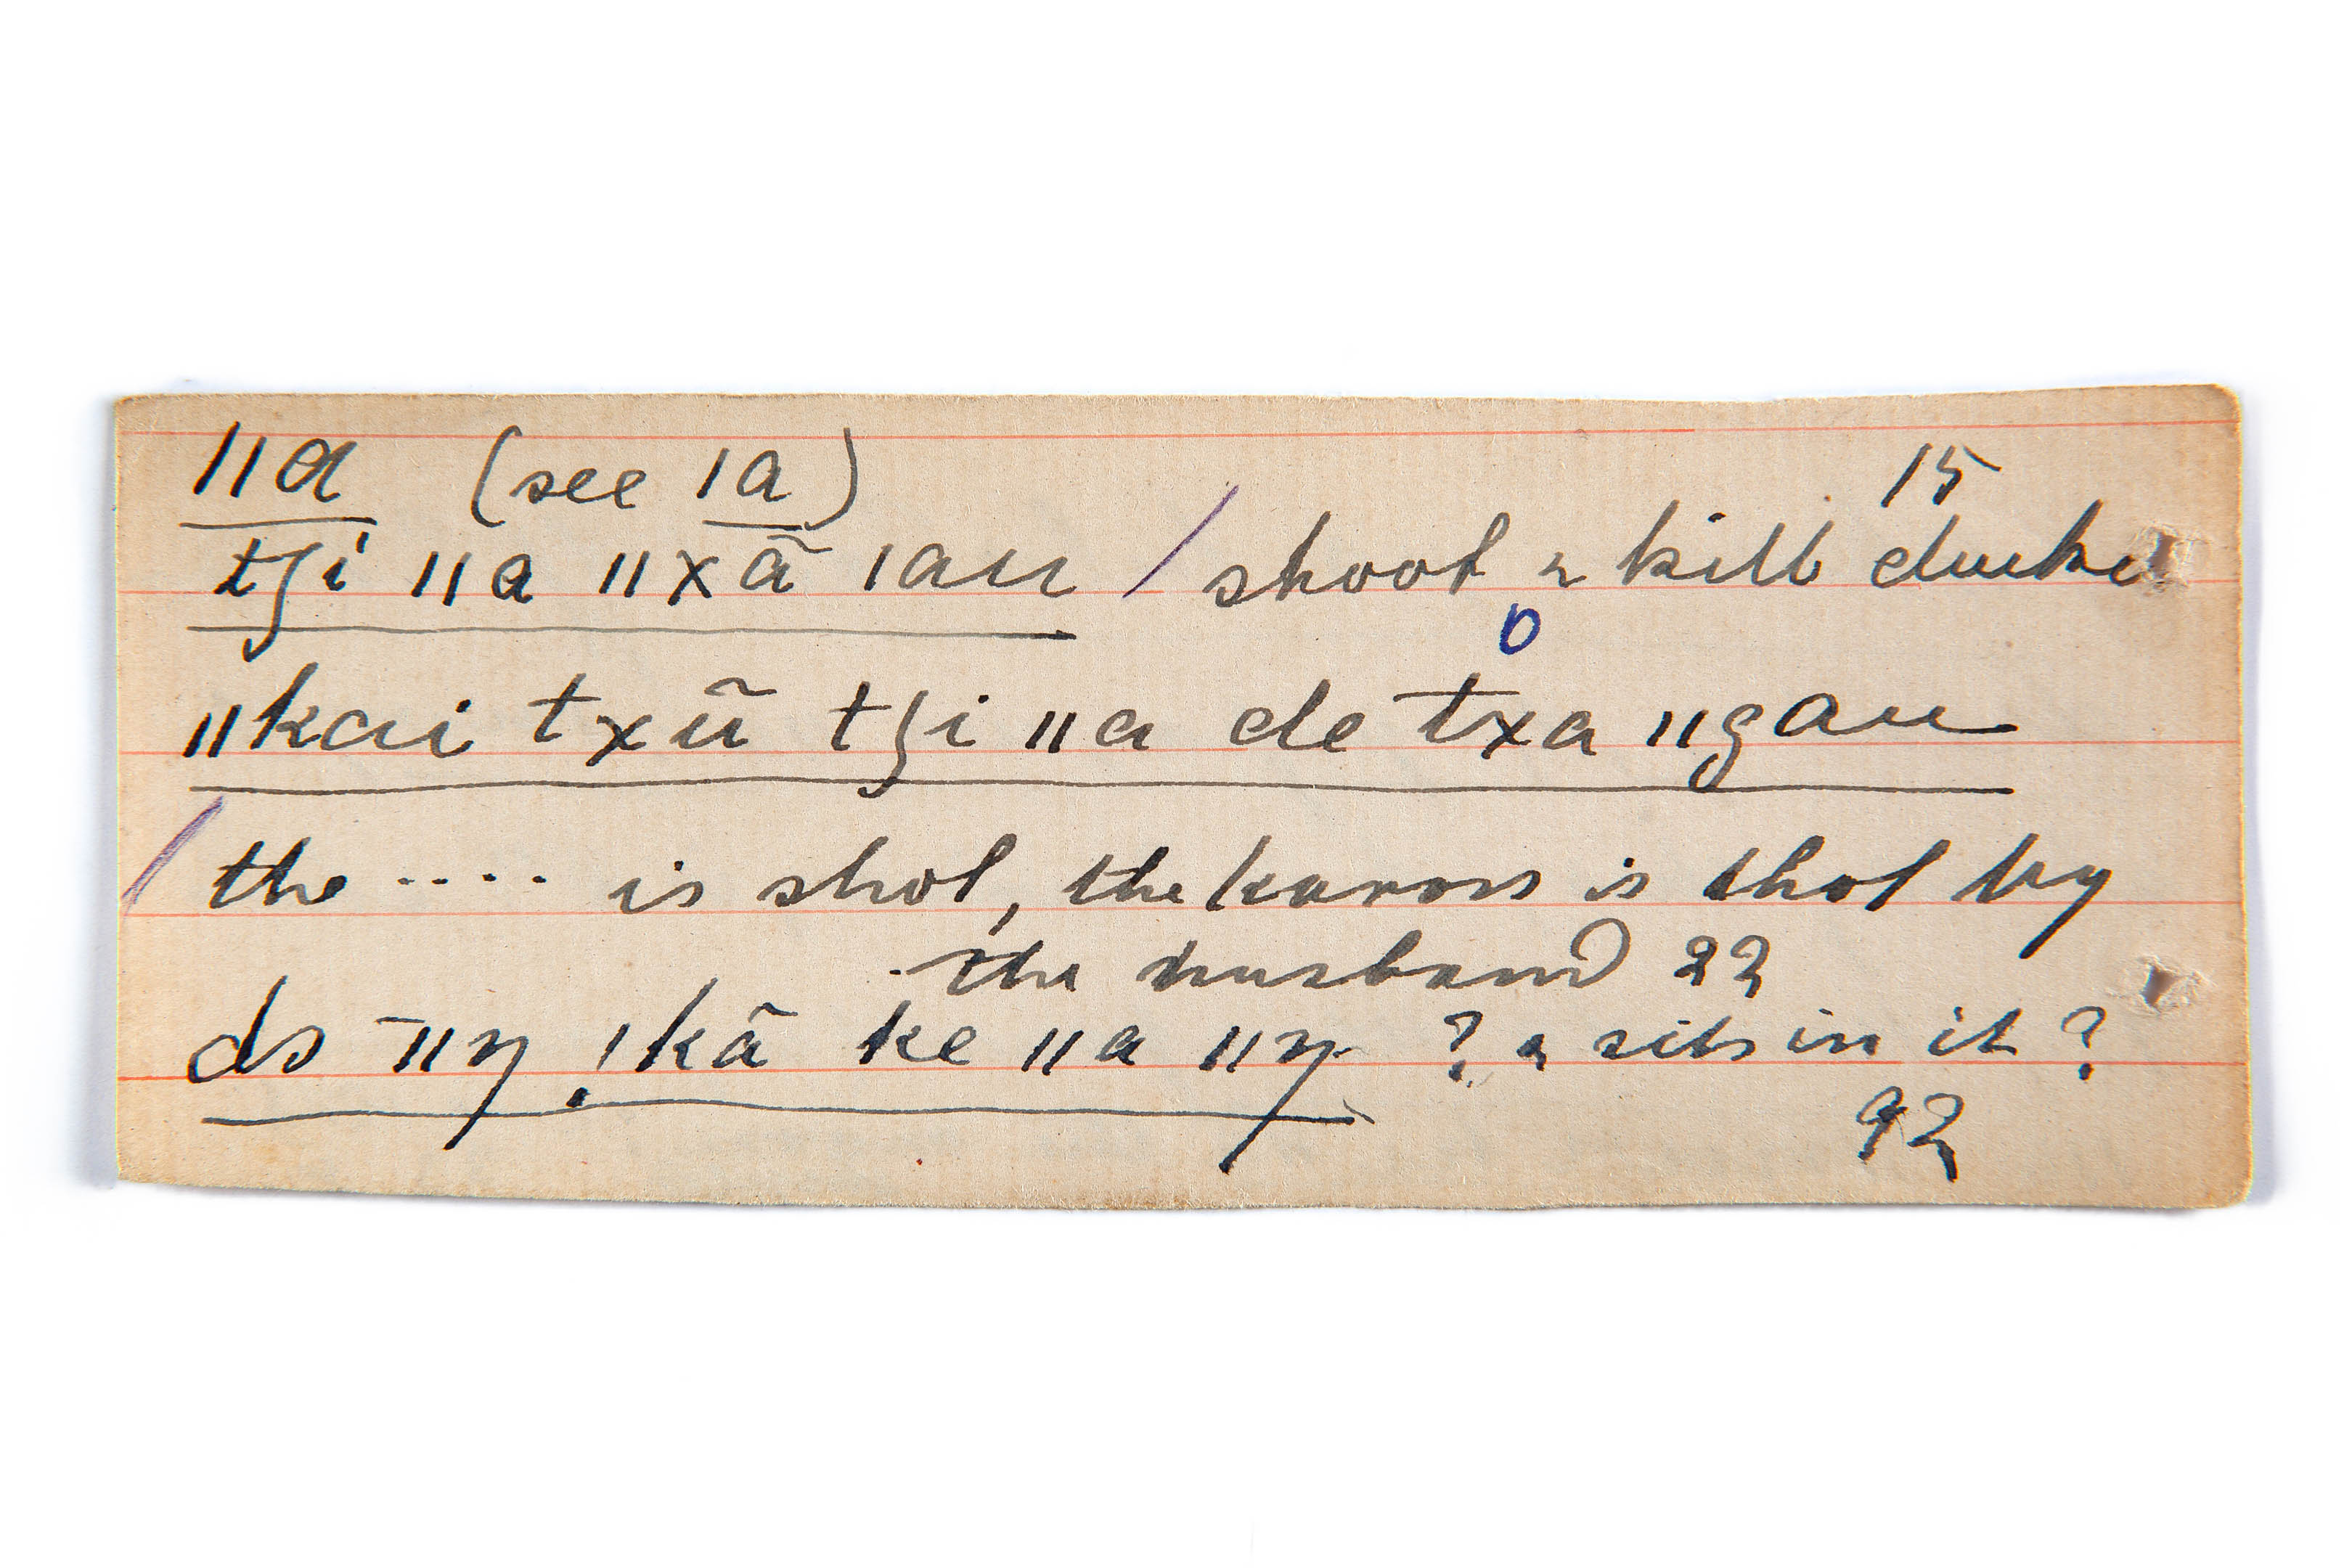 ǁa (see ǀa) 15
tʒi ǁa ǁxã ǀau / shoot & kill ducks
0
ǁkai txũ tʒi ǁa de t̄xa ǁgau
/ the .... is shot, the kaross is shot by
the husband 22
ds ̄ǁŋ ǃkã ke ǁa ǁŋ ? & sits in it ?
92